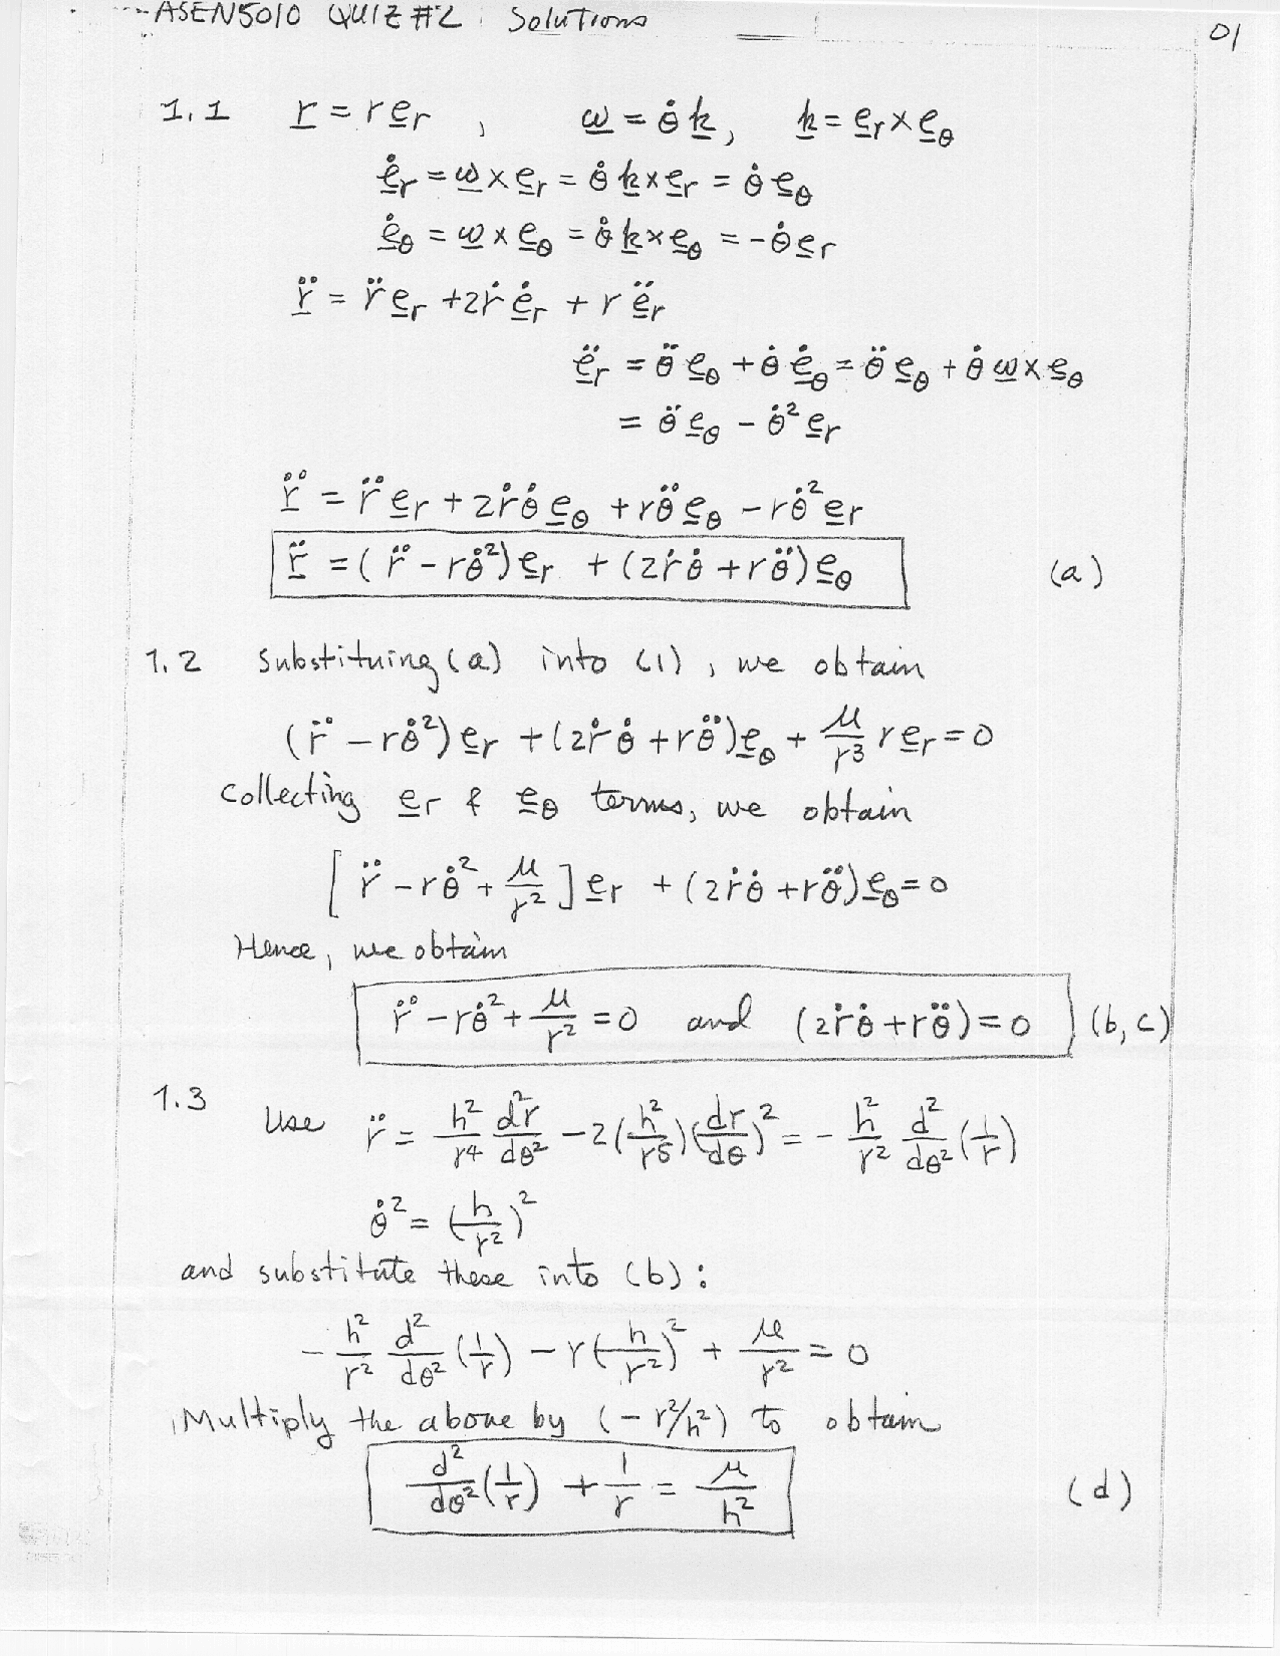 ASEN5010 QUIZ #2 : Solutions 01
1.1 r̲ = r e̲_r , ω̲ = θ̇ k̲, k̲ = e̲_r × e̲_θ
ė̲_r = ω̲ × e̲_r = θ̇ k̲ × e̲_r = θ̇ e̲_θ
ė̲_θ = ω̲ × e̲_θ = θ̇ k̲ × e̲_θ = -θ̇ e̲_r
r̲̈ = r̈ e̲_r + 2ṙ ė̲_r + r ë̲_r
ë̲_r = θ̈ e̲_θ + θ̇ ė̲_θ = θ̈ e̲_θ + θ̇ ω̲ × e̲_θ
= θ̈ e̲_θ - θ̇² e̲_r
r̲̈ = r̈ e̲_r + 2ṙθ̇ e̲_θ + rθ̈ e̲_θ - rθ̇² e̲_r
r̲̈ = (r̈ - rθ̇²) e̲_r + (2ṙθ̇ + rθ̈) e̲_θ (a)
1.2 Substituing (a) into (1), we obtain
(r̈ - rθ̇²) e̲_r + (2ṙθ̇ + rθ̈) e̲_θ + μ/r³ r e̲_r = 0
Collecting e̲_r & e̲_θ terms, we obtain
[r̈ - rθ̇² + μ/r²] e̲_r + (2ṙθ̇ + rθ̈) e̲_θ = 0
Hence, we obtain
r̈ - rθ̇² + μ/r² = 0 and (2ṙθ̇ + rθ̈) = 0 (b, c)
1.3 Use r̈ = h²/r⁴ d²r/dθ² - 2(h²/r⁵)(dr/dθ)² = - h²/r² d²/dθ² (1/r)
θ̇² = (h/r²)²
and substitute these into (b):
- h²/r² d²/dθ² (1/r) - r(h/r²)² + μ/r² = 0
Multiply the above by (- r²/h²) to obtain
d²/dθ² (1/r) + 1/r = μ/h² (d)